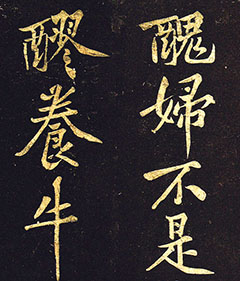 醜婦不是
醪養牛